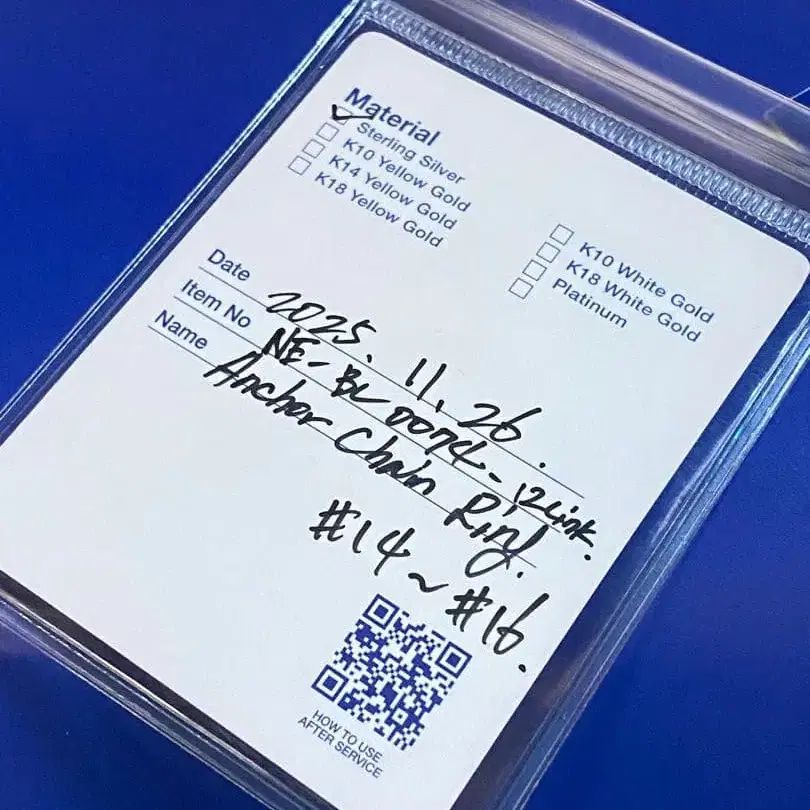 Material
Sterling Silver
K10 Yellow Gold
K14 Yellow Gold
K18 Yellow Gold
K10 White Gold
K18 White Gold
Platinum
Date 2025. 11. 26.
Item No NE-BL0074-12Link.
Name Anchor Chain Ring.
#14~#16.
HOW TO USE
AFTER SERVICE